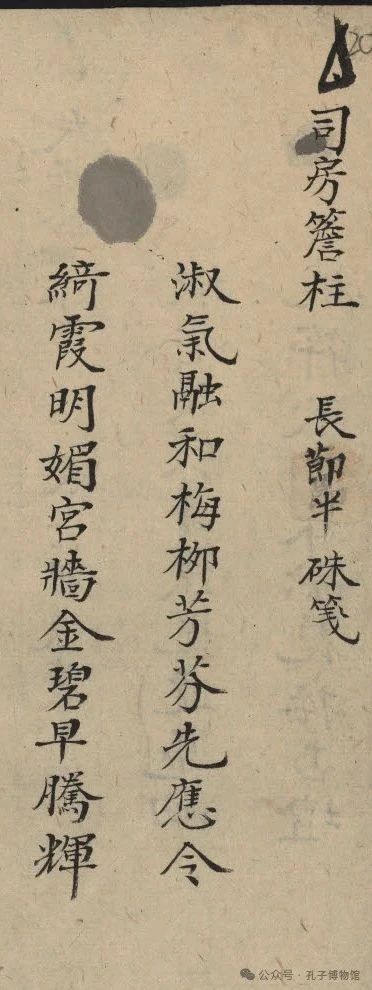 司房簷柱 長節半硃箋
淑氣融和梅柳芳芬先應令
綺霞明媚宮牆金碧早騰輝
20
公众号·孔子博物馆